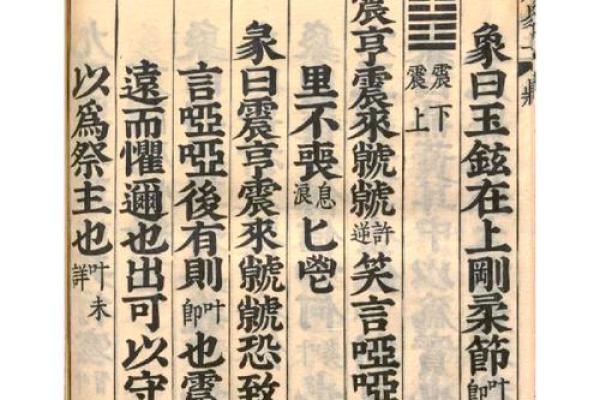 鼎
象曰玉鉉在上剛柔節叶即
䷲震下震上
震亨震來虩虩許逆笑言啞啞
里不喪息浪匕鬯
彖曰震亨震來虩虩恐致
言啞啞後有則叶即也震
遠而懼邇也出可以守
以爲祭主也叶未詳